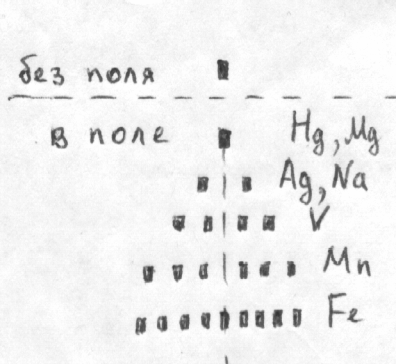 без поля
в поле Hg, Mg
Ag, Na
V
Mn
Fe